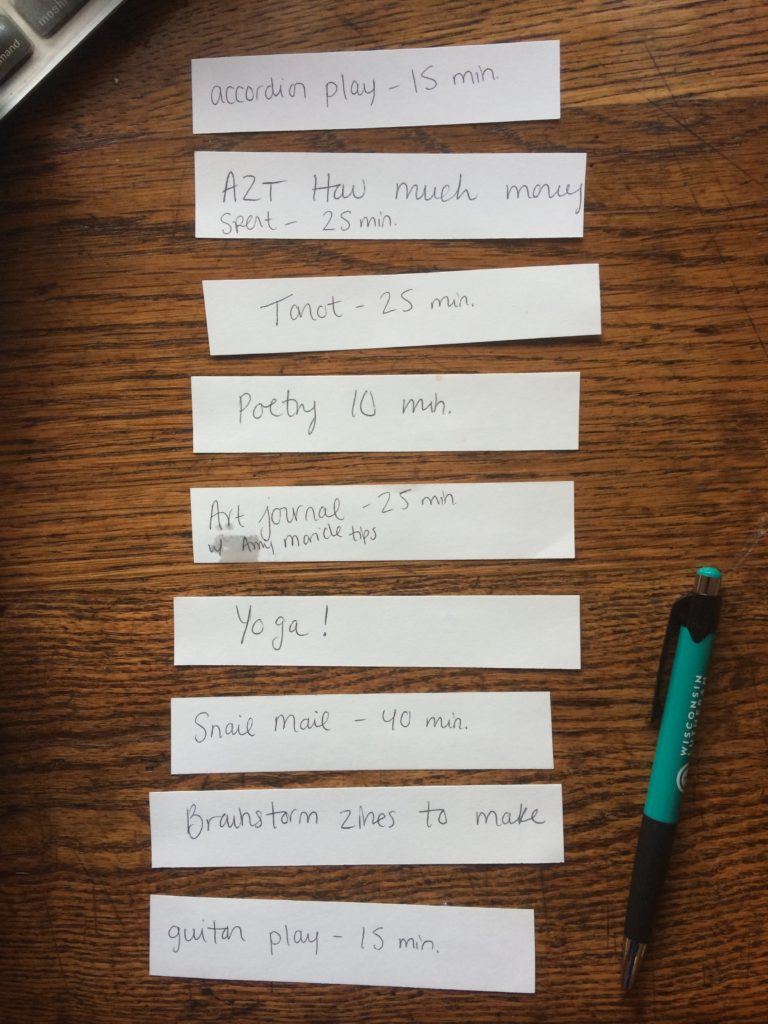 accordion play - 15 min.
AZT How much money
Spent - 25 min.
Tarot - 25 min.
Poetry 10 min.
Art journal - 25 min
w/ Amy maricle tips
Yoga!
Snail mail - 40 min.
Brainstorm zines to make
guitar play - 15 min.
WISCONSIN